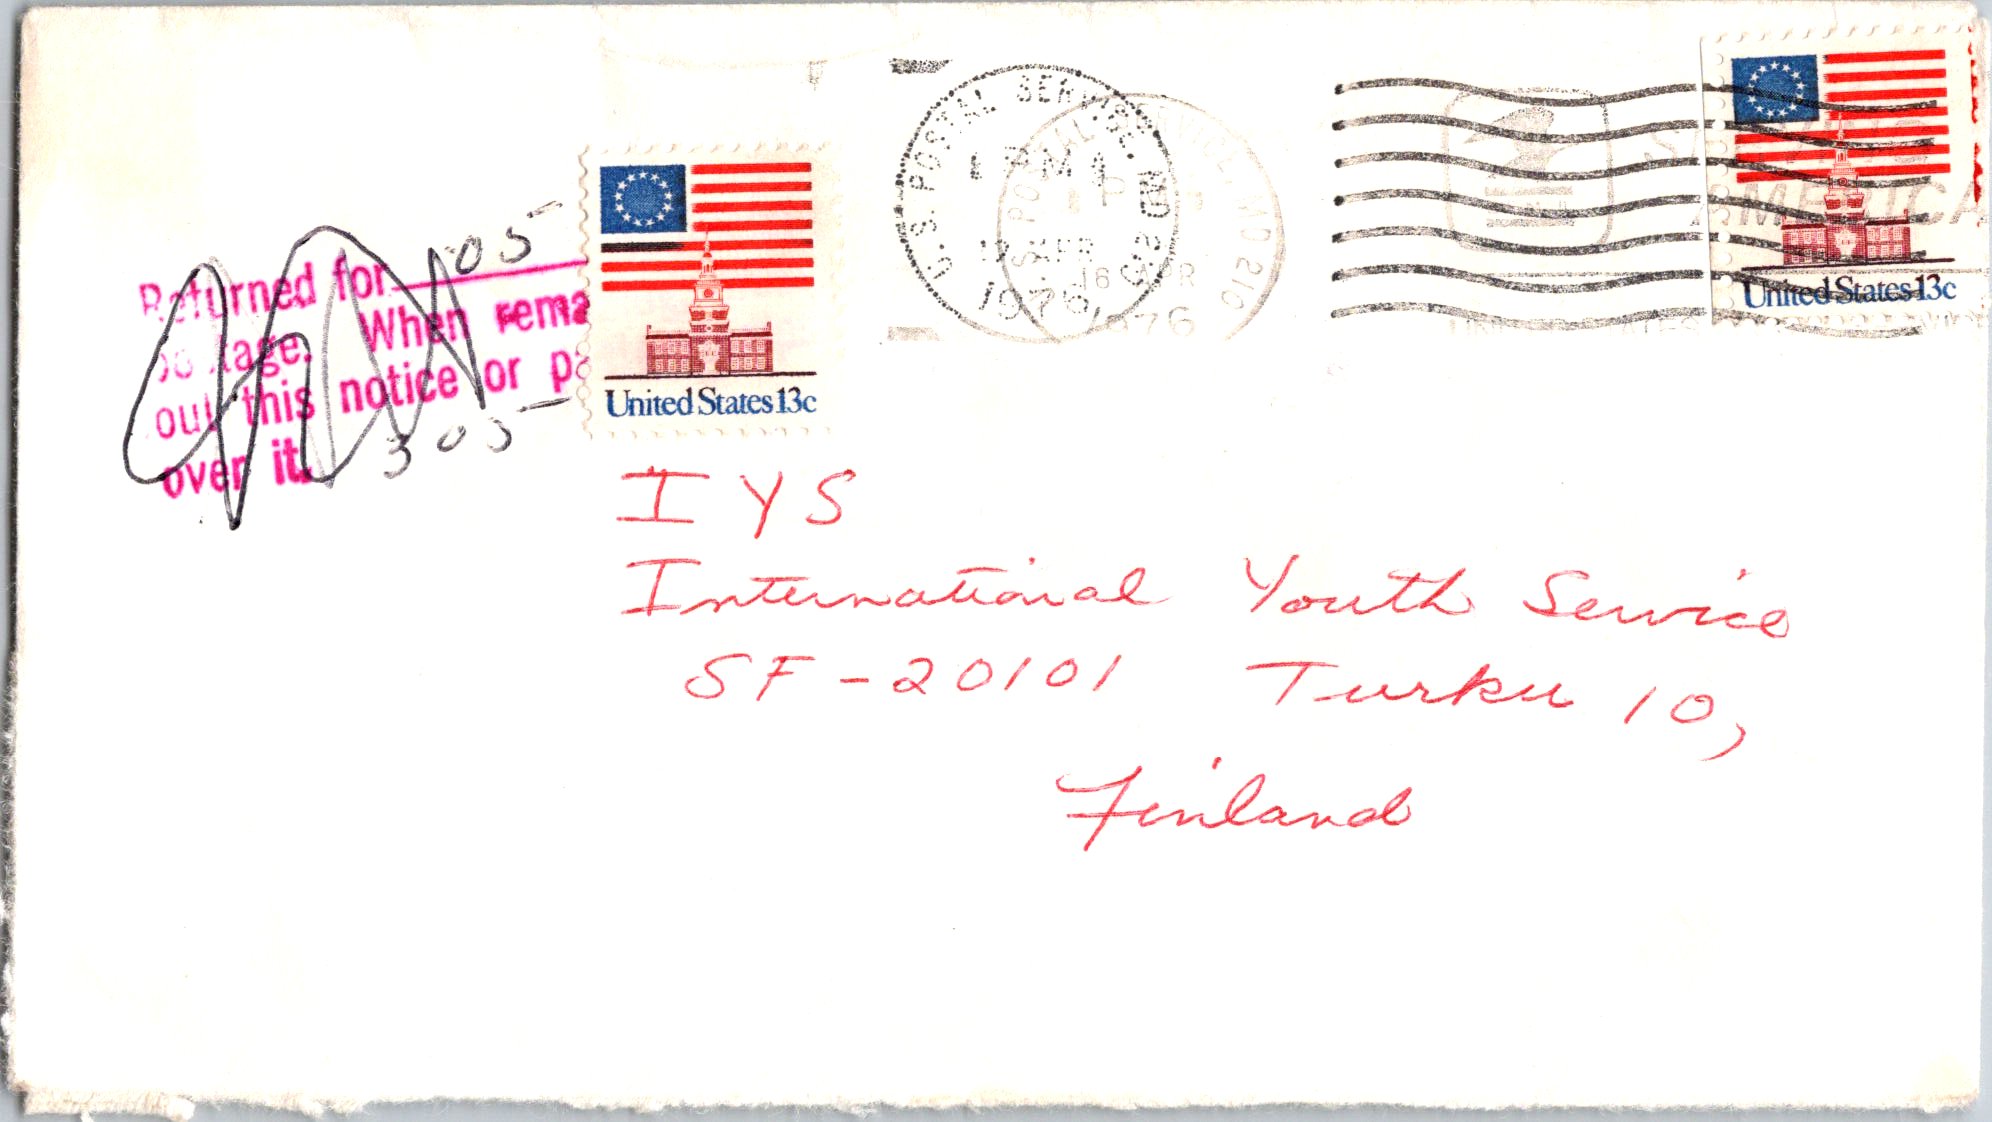 Returned for 05
postage. When rema
out this notice or pa
over it.
305
United States 13c
U.S. POSTAL SERVICE. MD 210
PM
19 APR
1976
POSTAL SERVICE, MD 210
PM
16 APR
1976
AMERICA
United States 13c
IYS
International Youth Service
SF-20101 Turku 10,
Finland